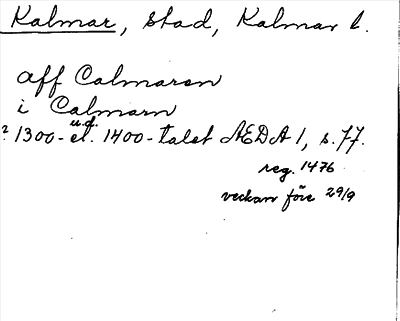 Kalmar, stad, Kalmar l.
aff Calmaren
i Calmarn
u.d.
? 1300- el. 1400-talet ÆDA 1, s. 77.
reg. 1476
veckan före 29/9